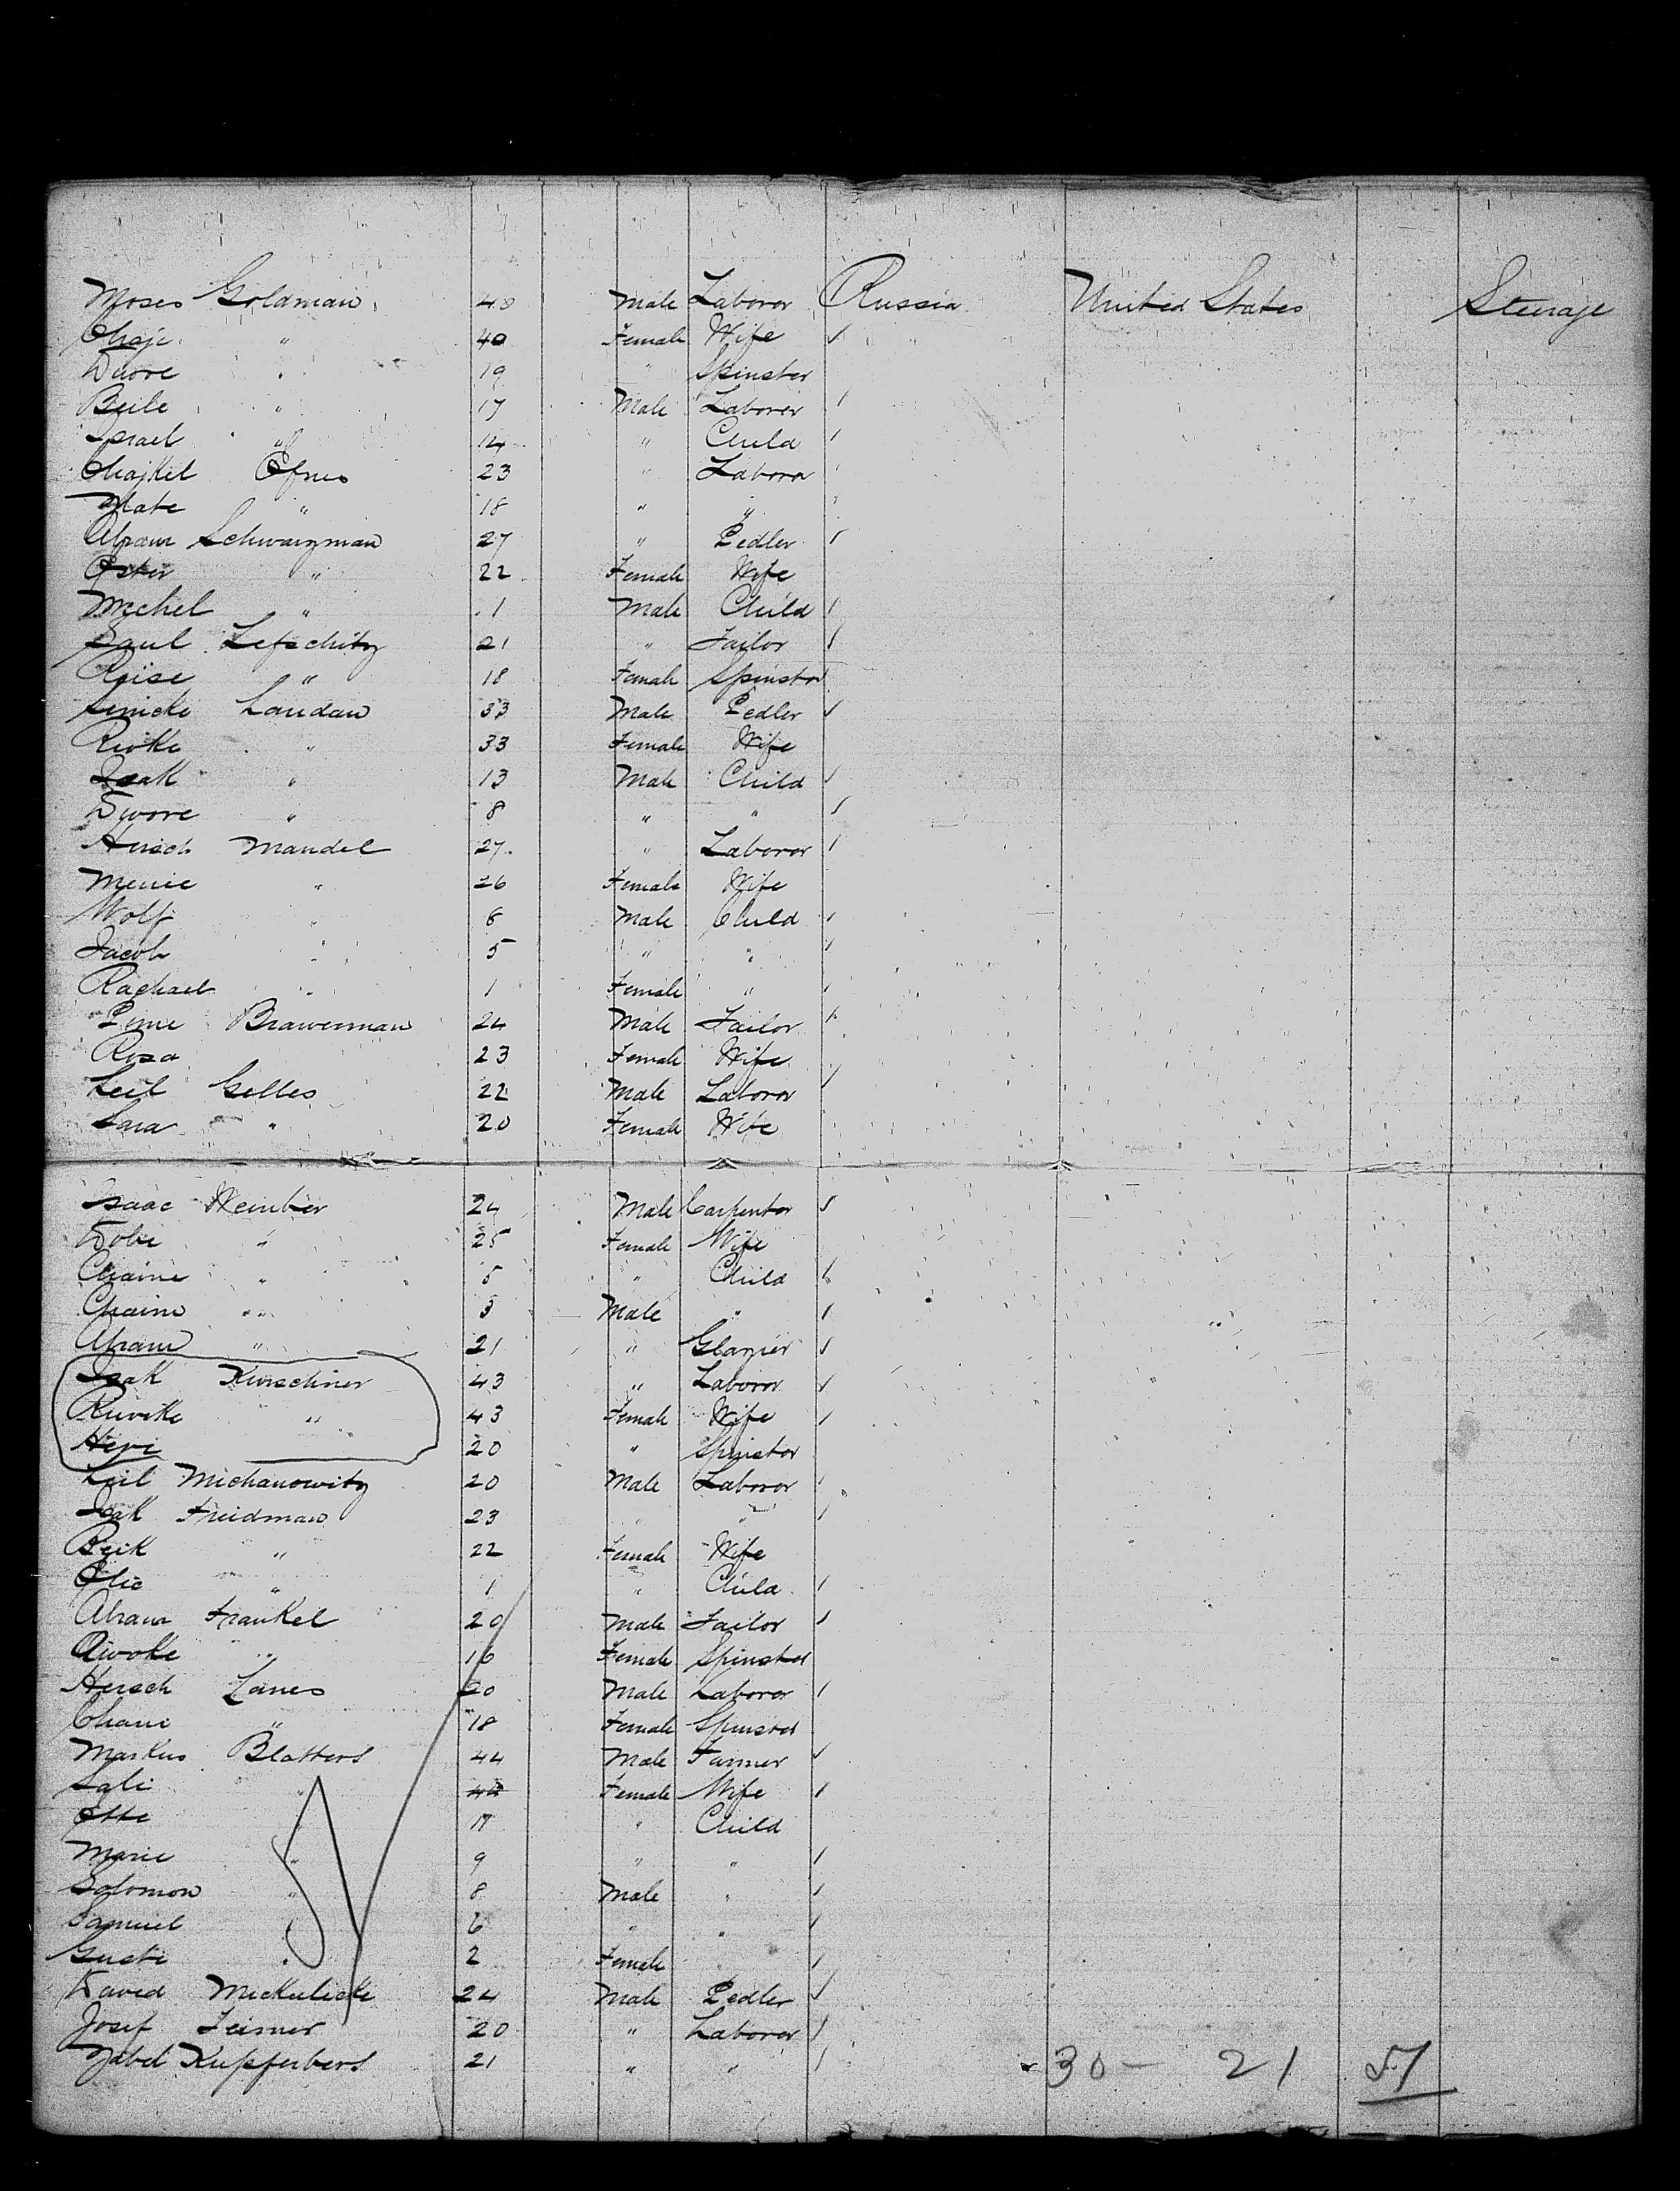 Moses Goldman 48 Male Laborer Russia United States Steerage
Chaje " 40 Female Wife
Dwore " 19 " Spinster
Beile " 17 Male Laborer
Israel " 14 " Child
Chajkel 23 " Laborer
Mate " 18 " "
Abram Schwarzman 27 " Pedler
Ester " 22 Female Wife
Michel " 1 Male Child
Saul Lefschitz 21 " Tailor
Reise " 18 Female Spinster
Landau 33 Male Pedler
Riwke " 33 Female Wife
Isak " 13 Male Child
Dwore " 8 " "
Hirsch Mandel 27 " Laborer
Menie " 26 Female Wife
Wolf " 6 Male Child
Jacob " 5 " "
Rachael " 1 Female "
Brawerman 24 Male Tailor
Rosa 23 Female Wife
Leib Gelles 22 Male Laborer
Sara " 20 Female Wife
Isaac 24 Male Carpenter
Dobe " 25 Female Wife
Chaine " 5 " Child
Chaim " 3 Male "
Abram " 21 " Glazier
Isak Kirschner 43 " Laborer
Riwke " 43 Female Wife
20 " Spinster
Leib Michanowitz 20 Male Laborer
Isak Freidman 23 " "
Beik " 22 Female Wife
" 1 " Child
Abram Frankel 20 Male Tailor
" 16 Female Spinster
Hersch Lanes 20 Male Laborer
Chane " 18 Female Spinster
Markus 44 Male Farmer
Sali " 44 Female Wife
Ette 11 " Child
Marie " 9 " "
Solomon " 8 Male "
Samuel " 6 " "
Guste " 2 Female
David Mickulicki 24 Male Pedler
Josef 20 " Laborer
Kupferberg 21 " "
30 - 21 51